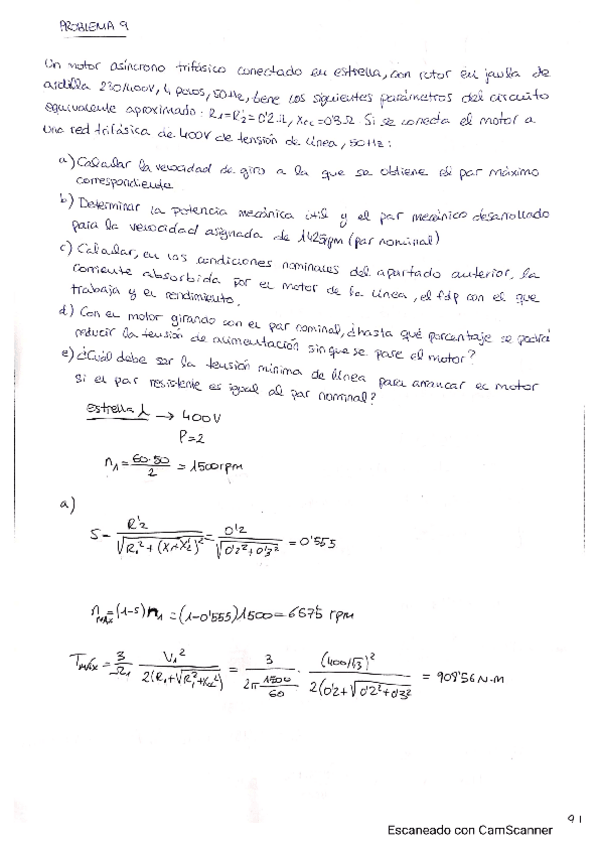 PROBLEMA 9
Un motor asíncrono trifásico conectado en estrella, con rotor en jaula de
ardilla 230/400V, 4 polos, 50Hz, tiene los siguientes parámetros del circuito
equivalente aproximado: R1=R'2=0'2Ω, Xcc=0'3Ω. Si se conecta el motor a
una red trifásica de 400V de tensión de línea, 50Hz:
a) Calcular la velocidad de giro a la que se obtiene el par máximo
correspondiente
b) Determinar la potencia mecánica útil y el par mecánico desarrollado
para la velocidad asignada de 1425rpm (par nominal)
c) Calcular, en las condiciones nominales del apartado anterior, la
corriente absorbida por el motor de la línea, el fdp con el que
trabaja y el rendimiento.
d) Con el motor girando con el par nominal, ¿hasta qué porcentaje se podrá
reducir la tensión de alimentación sin que se pare el motor?
e) ¿Cuál debe ser la tensión mínima de línea para arrancar el motor
si el par resistente es igual al par nominal?
Estrella λ → 400V
P=2
n1 = 60·50/2 = 1500rpm
a)
S = R'2/√(R1²+(X1+X'2)²) = 0'2/√(0'2²+0'3²) = 0'555
nMAX = (1-S)n1 = (1-0'555)1500 = 667'5 rpm
TMÁX = 3/Ω1 V1²/2(R1+√(R1²+Xcc²)) = 3/(2π 1500/60) · (400/√3)²/2(0'2+√(0'2²+0'3²)) = 908'56 N·m
91
Escaneado con CamScanner